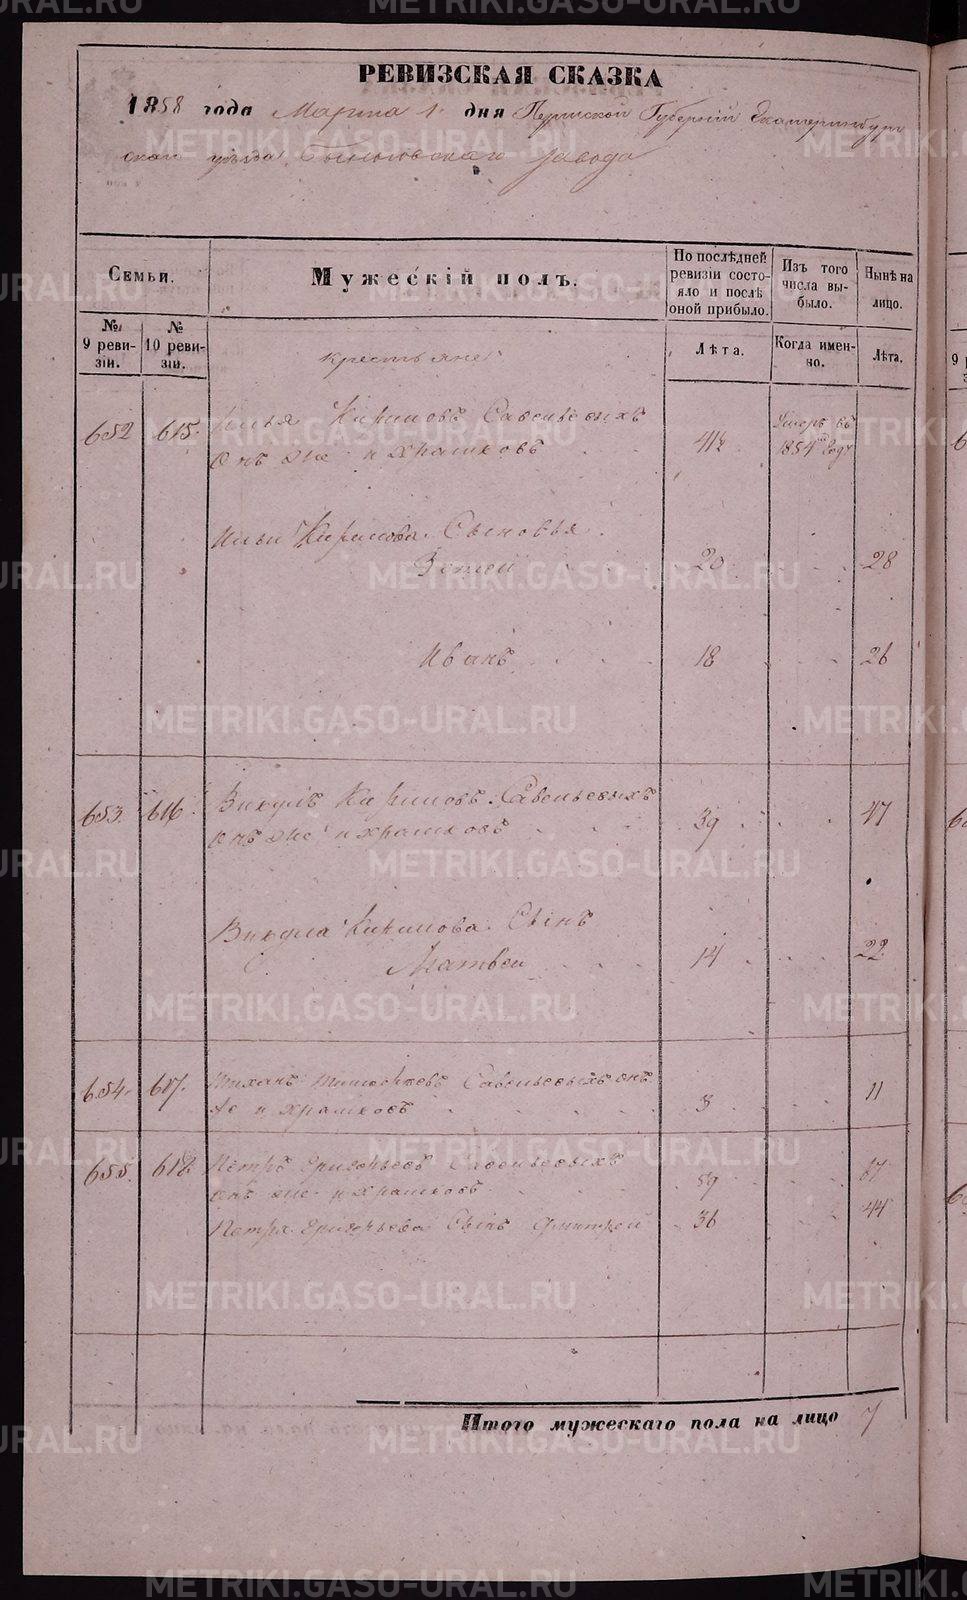 РЕВИЗСКАЯ СКАЗКА
1858 года Марта 1 дня Пермской Губернии Екатеринбург
скаго уѣзда завода
Семьи.
№ 9 ревизіи.
№ 10 ревизіи.
Мужескій полъ.
По послѣдней
ревизіи состо-
яло и послѣ
оной прибыло.
Лѣта.
Изъ того
числа вы-
было.
Когда имен-
но.
Нынѣ на
лицо.
Лѣта.
крестьяне
652 615. Илья Кириловъ Савельевыхъ
онъ же и Храмковъ 42 Умеръ въ 1854 году
Ильи Кирилова Сыновья
20 28
Иванъ 18 26
653. 616 Викулъ Кириловъ Савельевыхъ
онъ же и Храмковъ 39 47
Викула Кирилова Сынъ
Матвей 14 22
654. 617. Тимофеевъ Савельевыхъ онъ
же и Храмковъ 3 11
655. 618 Петръ Григорьевъ Савельевыхъ
онъ же и Храмковъ 59 67
Петра Григорьева Сынъ Дмитрей 36 44
Итого мужескаго пола на лицо 7
METRIKI.GASO-URAL.RU